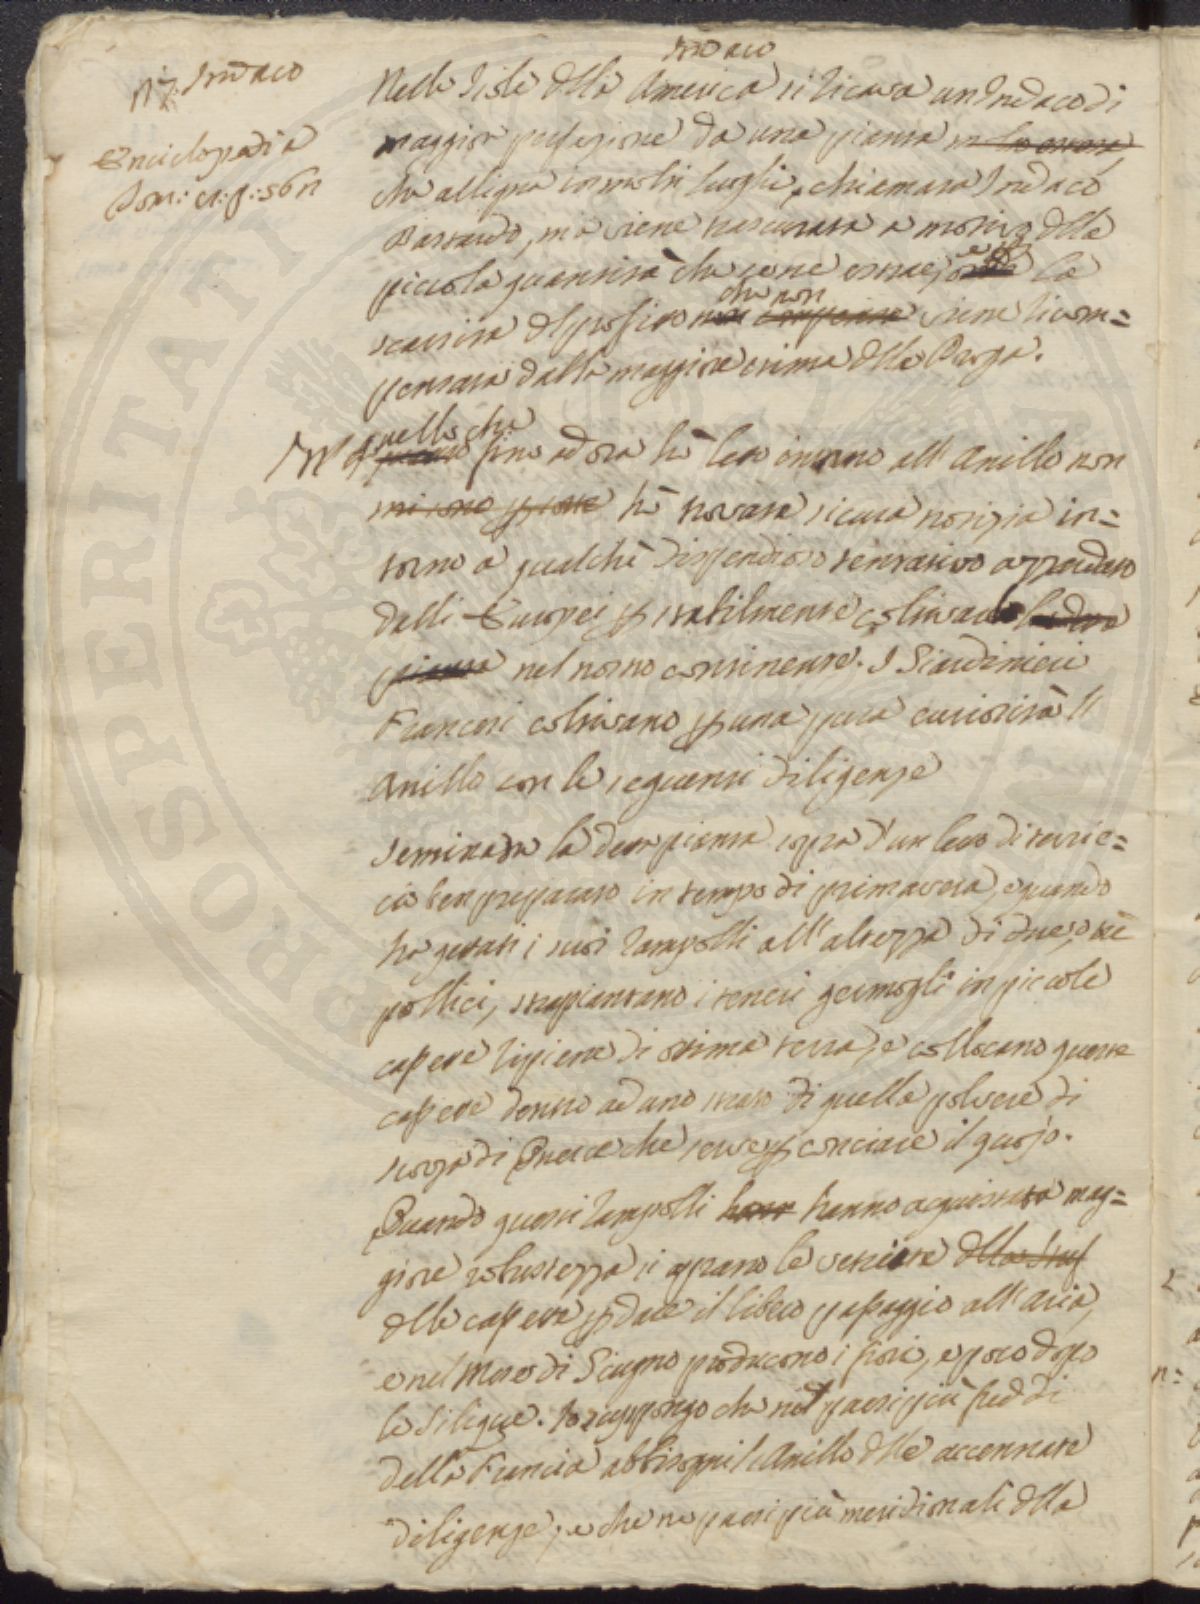 Indaco
N.7. Indaco
Enciclopedia
Tom: p: 56
Nelle Isole dlla America si ricava un Indaco di
maggior perfezione da una pianta
che alligna in molti luoghi, chiamata Indaco
Bastardo, mà viene trascurata a motivo dlla
piccola quantità che se ne estrae, e la
scarsità dl profitto che non viene ricom=
pensata dalla maggior stima dlla Droga.
quello che
In fino ad ora hò letto intorno all' Anillo non
mi sono hò trovata sicura notizia in=
torno a qualche dispendioso tentativo
dalli Europei p stabilmente coltivare
pianta nel nostro continente. I Giardinieri
Francesi coltivano p una pura curiosità l'
Anillo con le seguenti diligenze
Seminata la detta pianta sopra d'un letto di terric=
cio ben preparato in tempo di primavera, e quando
ha gettati i suoi rampolli all' altezza di due, o trè
pollici, trapiantano i teneri germogli in piccole
cassette ripiene di ottima terra, e collocano queste
cassette dentro ad uno strato di quella polvere di
scorza di Querce che serve p conciare il quojo.
Quando questi rampolli hann hanno acquistata mag=
giore robustezza si aprano le vetriate
dlle cassette p dare il libero passaggio all' aria,
e nel Mese di Giugno producono i fiori, e poco dopo
le Silique. Io suppongo che nei paesi più freddi
della Francia abbisogni l'Anillo dlle accennate
diligenze, e che ne paesi più meridionali dlla